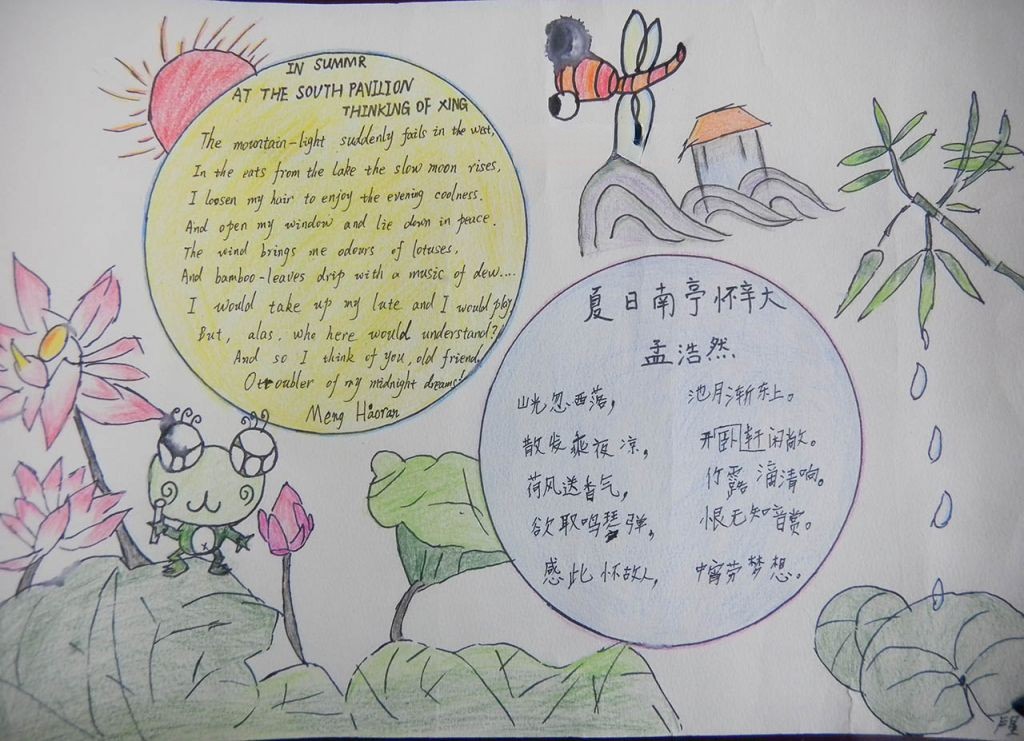 IN SUMMR
AT THE SOUTH PAVILION
THINKING OF XING
The mountain-light suddenly fails in the west,
In the eats from the lake the slow moon rises,
I loosen my hair to enjoy the evening coolness.
And open my window and lie down in peace.
The wind brings me odours of lotuses,
And bamboo-leaves drip with a music of dew....
I would take up my lute and I would play,
But, alas, who here would understand?
And so I think of you, old friend,
O troubler of my midnight dreams!
Meng Haoran
夏日南亭怀辛大
孟浩然
山光忽西落, 池月渐东上。
散发乘夜凉, 开卧轩闲敞。
荷风送香气, 竹露滴清响。
欲取鸣琴弹, 恨无知音赏。
感此怀故人, 中宵劳梦想。